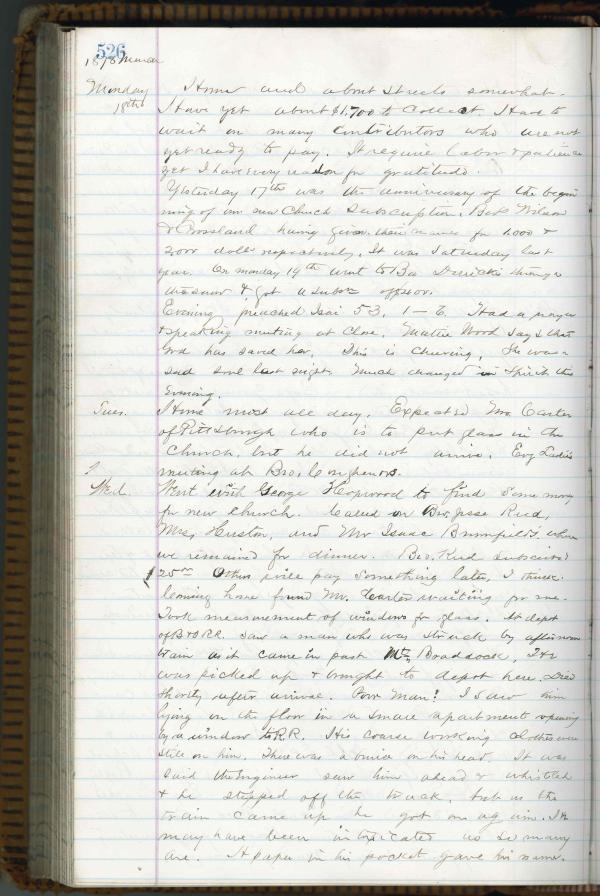 526
1878 March
Monday Home and about streets somewhat.
18th I have yet about $1,700 to Collect. I had to
wait on many contributors who are not
yet ready to pay. It require labor & patience
yet I have every reason for gratitude.
Yesterday 17th was the anniversary of the begin
ning of our new Church Subscription, Bob Wilson
& Crossland having given their names for 1.000 &
doll respectively. It was Saturday last
year. On monday 19th went to Bro through
the snow & got a subn of
Evening preached Isai 53. 1-6. Had a prayer
& speaking meeting at close. Mattie Wood says that
God has saved her. This is cheering. She was a
sad soul last night. Much changed in Spirit this
Evening.
Tues. Home most all day. Expected Mr. Carter
of Pittsburgh who is to put glass in the
Church, but he did not arrive. Evg Ladies
meeting at Bro.
Wed. Went with George Hopwood to find some mony
for new church. Called on Bro. Jesse Reed,
Mrs, Huston, and Mr Isaac Brownfield's where
we remained for dinner. Bro. Reed subscribed
25.00 Others will pay something later, I think.
Coming home found Mr. Carter waiting for me.
Took measurement of windows for glass. At depot
of B&O RR. saw a man who was struck by afternoon
train as it came in past Mt. Braddock, I &c
was picked up & brought to depot here. Died
shortly after arrival. Poor Man! I saw him
lying on the floor in a small apartment opening
by a window to R.R. His coarse working clothes were
still on him. There was a bruise on his head. It was
said the Engineer saw him ahead & whistled
& he stepped off the track, but as the
train came up he got on again. He
may have been intoxicated as so many
are. A paper in his pocket gave his name.